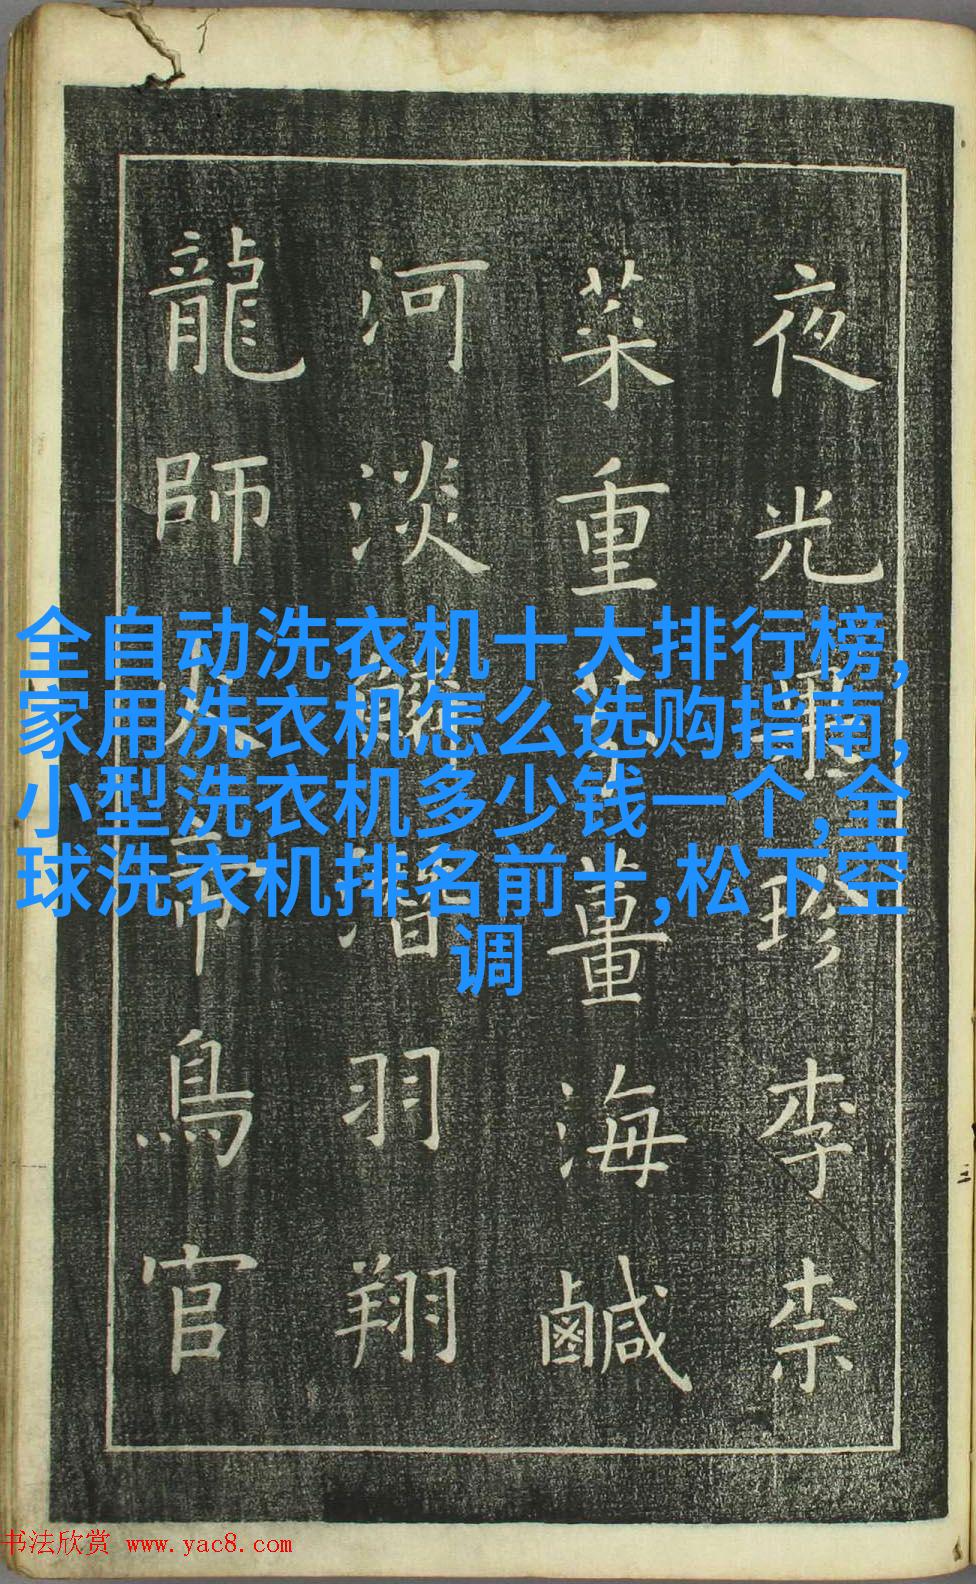 全自动洗衣机十大排行榜,
家用洗衣机怎么选购指南,
小型洗衣机多少钱一个,全
球洗衣机排名前十,松下空
调
夜光珍李柰
菜重薑海鹹
河淡潛羽翔
龍師火帝鳥官
书法欣赏 www.yac8.com